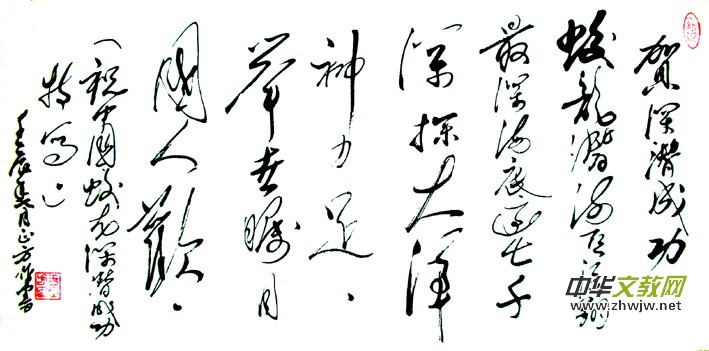 贺深潜成功
蛟龙潜海翔
最深海底逾七千
深探大洋
神力足、
举世瞩目
國人歡、
（祝中國蛟龙深潜成功
特写）
壬辰夏月正方作書
中华文教网
www.zhwjw.net